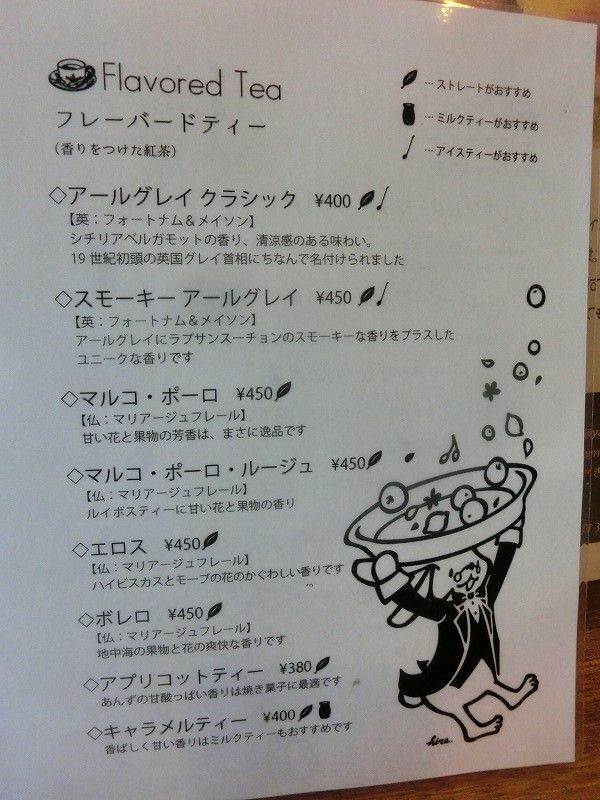 Flavored Tea
フレーバードティー
（香りをつけた紅茶）
… ストレートがおすすめ
… ミルクティーがおすすめ
… アイスティーがおすすめ
◇アールグレイ クラシック ¥400
【英：フォートナム＆メイソン】
シチリアベルガモットの香り、清涼感のある味わい。
19 世紀初頭の英国グレイ首相にちなんで名付けられました
◇スモーキー アールグレイ ¥450
【英：フォートナム＆メイソン】
アールグレイにラプサンスーチョンのスモーキーな香りをプラスした
ユニークな香りです
◇マルコ・ポーロ ¥450
【仏：マリアージュフレール】
甘い花と果物の芳香は、まさに逸品です
◇マルコ・ポーロ・ルージュ ¥450
【仏：マリアージュフレール】
ルイボスティーに甘い花と果物の香り
◇エロス ¥450
【仏：マリアージュフレール】
ハイビスカスとモーブの花のかぐわしい香りです
◇ボレロ ¥450
【仏：マリアージュフレール】
地中海の果物と花の爽快な香りです
◇アプリコットティー ¥380
あんずの甘酸っぱい香りは焼き菓子に最適です
◇キャラメルティー ¥400
香ばしく甘い香りはミルクティーもおすすめです
hira.